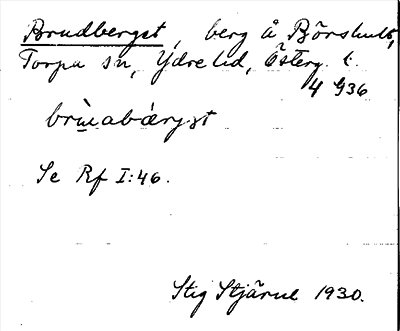 Brudberget, berg å Börshult,
Torpa sn, Ydre hd, Österg. l.
4 G36
brùnabǽrgət
Se Rf I:46.
Stig Stjärne 1930.